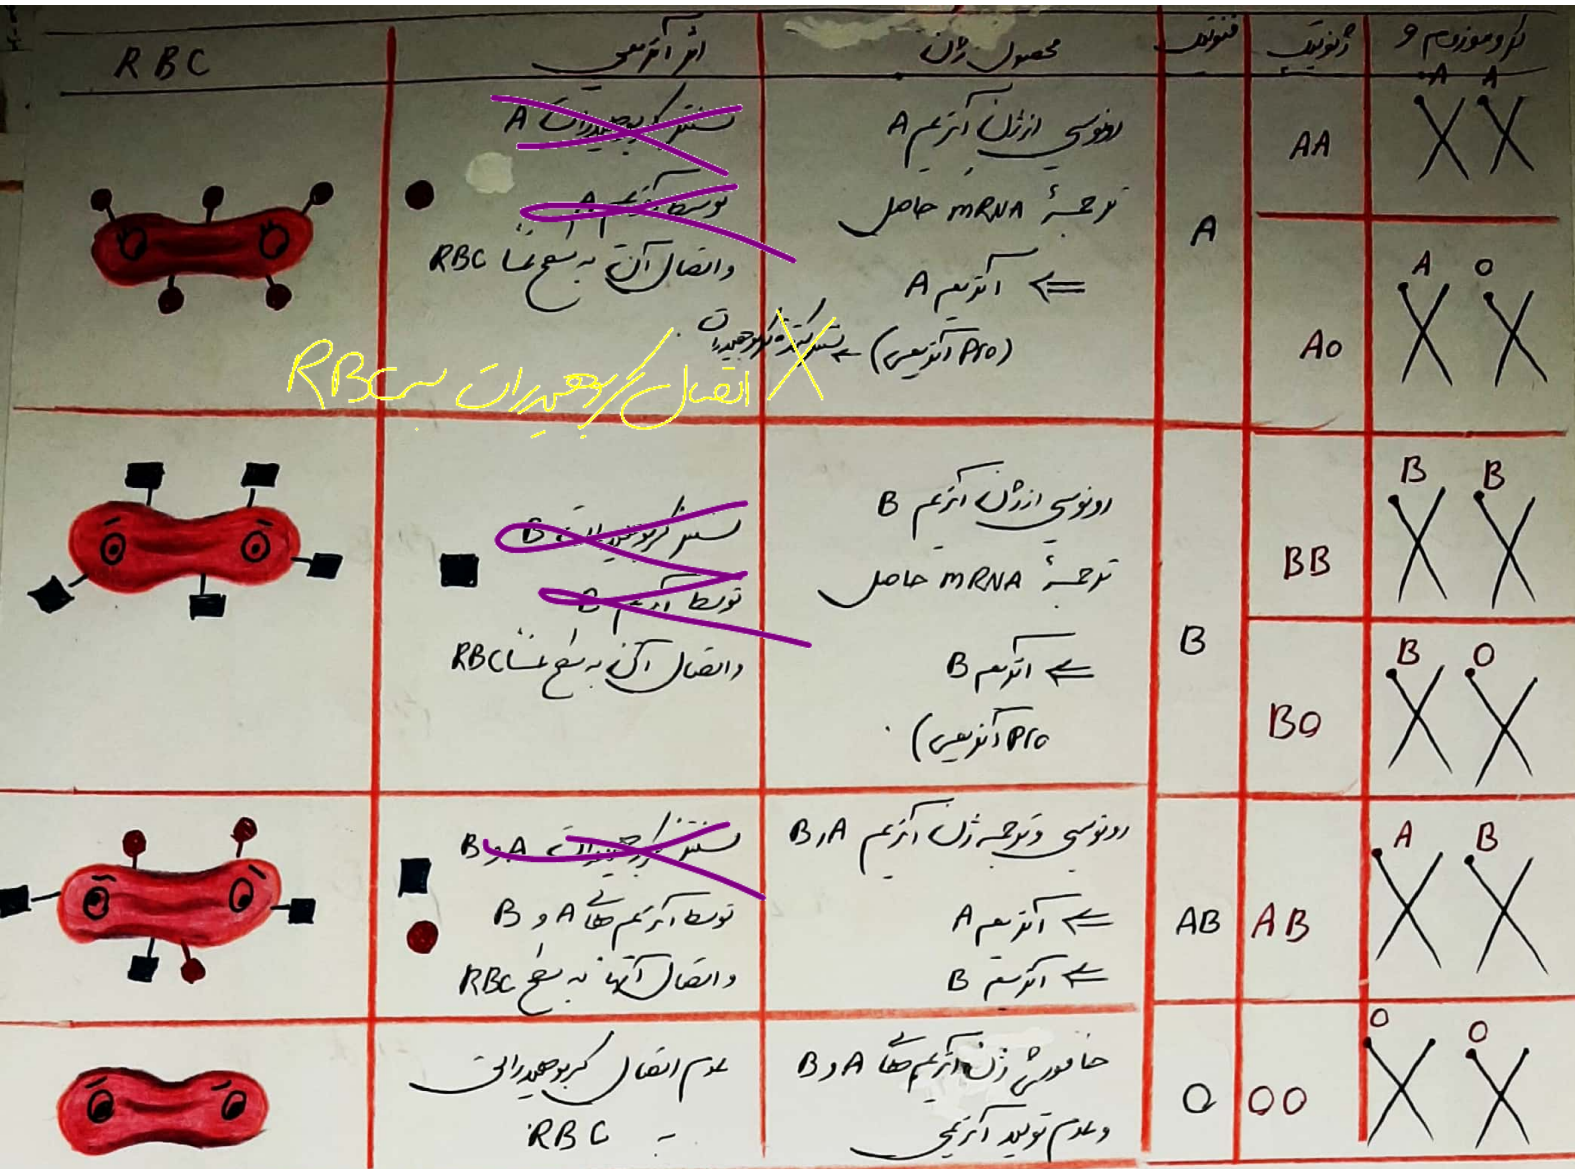 کروموزوم 9
ژنوتیپ
فنوتیپ
محصول ژن
اثر آنزیمی
RBC
A A
AA
A
رونوسی از ژن آنزیم A
ترجمهٔ mRNA حاصل
⇐ آنزیم A
(Pro آنزیمی) ← سنتز کننده کربوهیدرات
سنتز کربوهیدرات A
توسط آنزیم A
و اتصال آن به سطح غشا RBC
اتصال کربوهیدرات به RBC
A O
AO
B B
BB
B
رونوسی از ژن آنزیم B
ترجمهٔ mRNA حاصل
⇐ آنزیم B
Pro آنزیمی)
سنتز کربوهیدرات B
توسط آنزیم B
و اتصال آن به سطح غشا RBC
B O
BO
A B
AB
AB
رونوسی و ترجمه ژن آنزیم A و B
⇐ آنزیم A
⇐ آنزیم B
سنتز کربوهیدرات A و B
توسط آنزیم های A و B
و اتصال آنها به سطح RBC
O O
OO
O
خاموشی ژن آنزیم های A و B
و عدم تولید آنزیمی
عدم اتصال کربوهیدراتی
به RBC